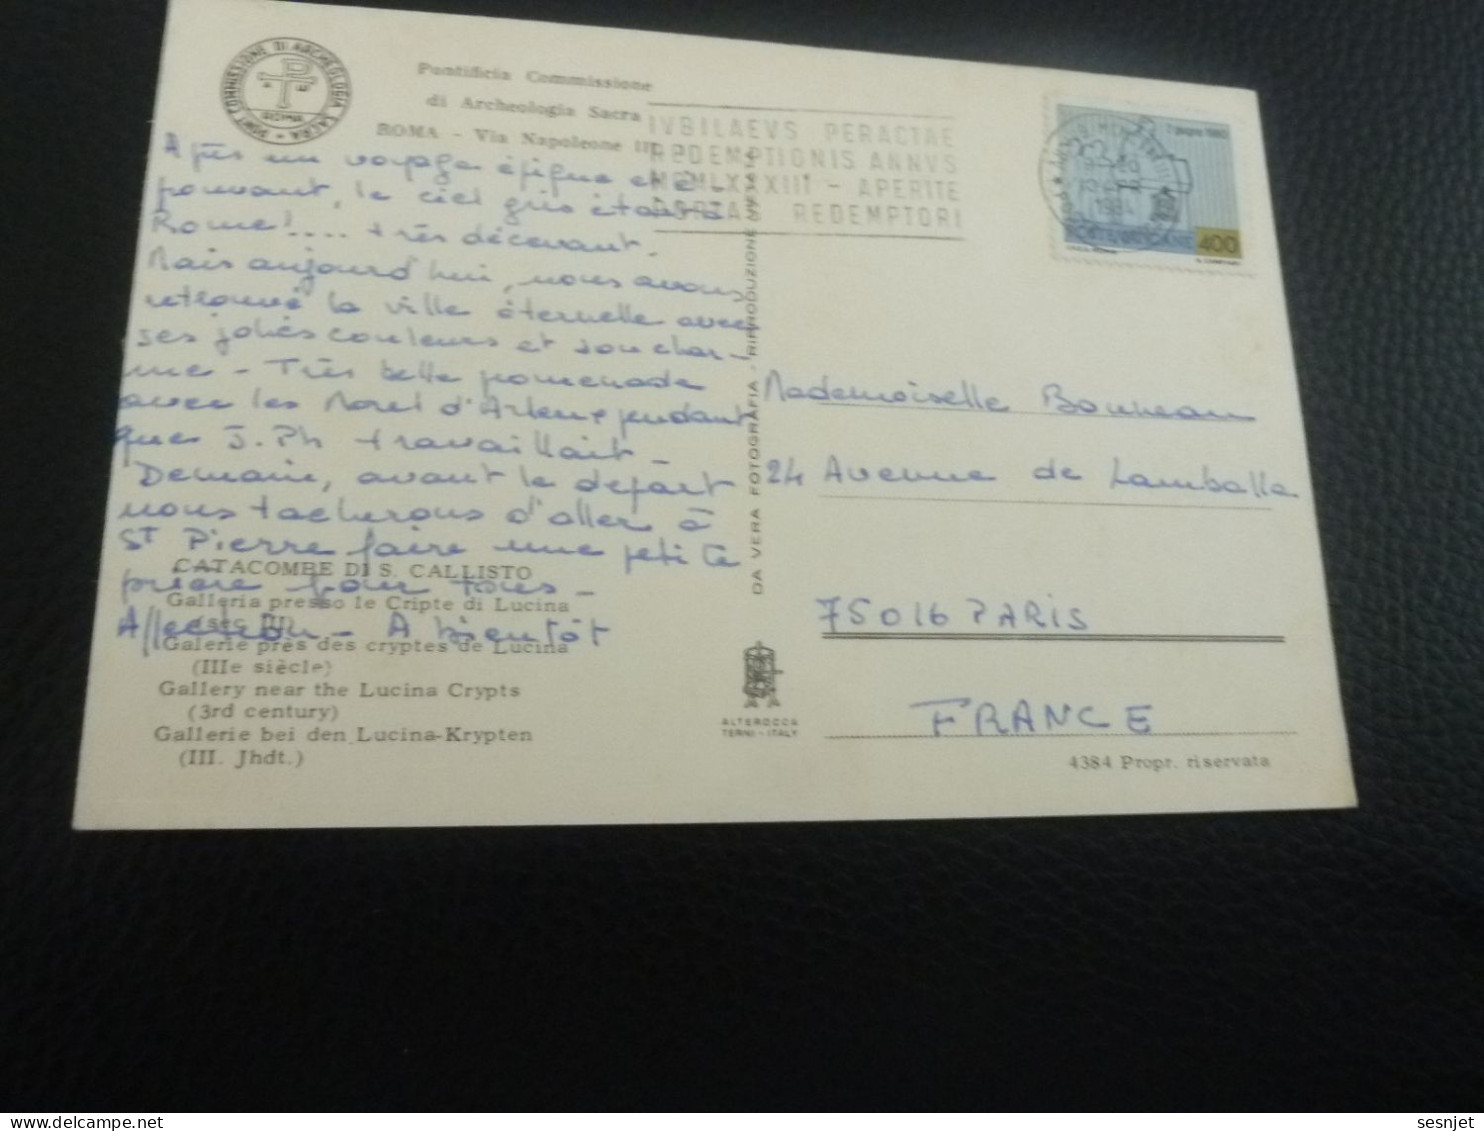 PONT. COMMISSIONE DI ARCHEOLOGIA SACRA
Pontificia Commissione
di Archeologia Sacra
ROMA - Via Napoleone III,
IVBILAEVS PERACTAE
REDEMPTIONIS ANNVS
MCMLXXXIII - APERITE
PORTAS REDEMPTORI
1984
400
Après un voyage épique et é-
pouvant, le ciel gris était à
Rome!.... très décevant.
Mais aujourd'hui, nous avons
retrouvé la ville éternelle avec
ses jolies couleurs et son char-
me - Très belle promenade
avec les Morel d'Arleux pendant
que J.Ph travaillait -
Demain, avant le départ
nous tacherons d'aller à
St Pierre faire une petite
prière pour tous -
Affection - A bientôt
CATACOMBE DI S. CALLISTO
Galleria presso le Cripte di Lucina
(sec. III)
Galerie près des cryptes de Lucina
(IIIe siècle)
Gallery near the Lucina Crypts
(3rd century)
Gallerie bei den Lucina-Krypten
(III. Jhdt.)
DA VERA FOTOGRAFIA - RIPRODUZIONE VIETATA
ALTEROCCA
TERNI - ITALY
Mademoiselle Bonneau
24 Avenue de Lamballe
75016 PARIS
FRANCE
4384 Propr. riservata
sesnjet